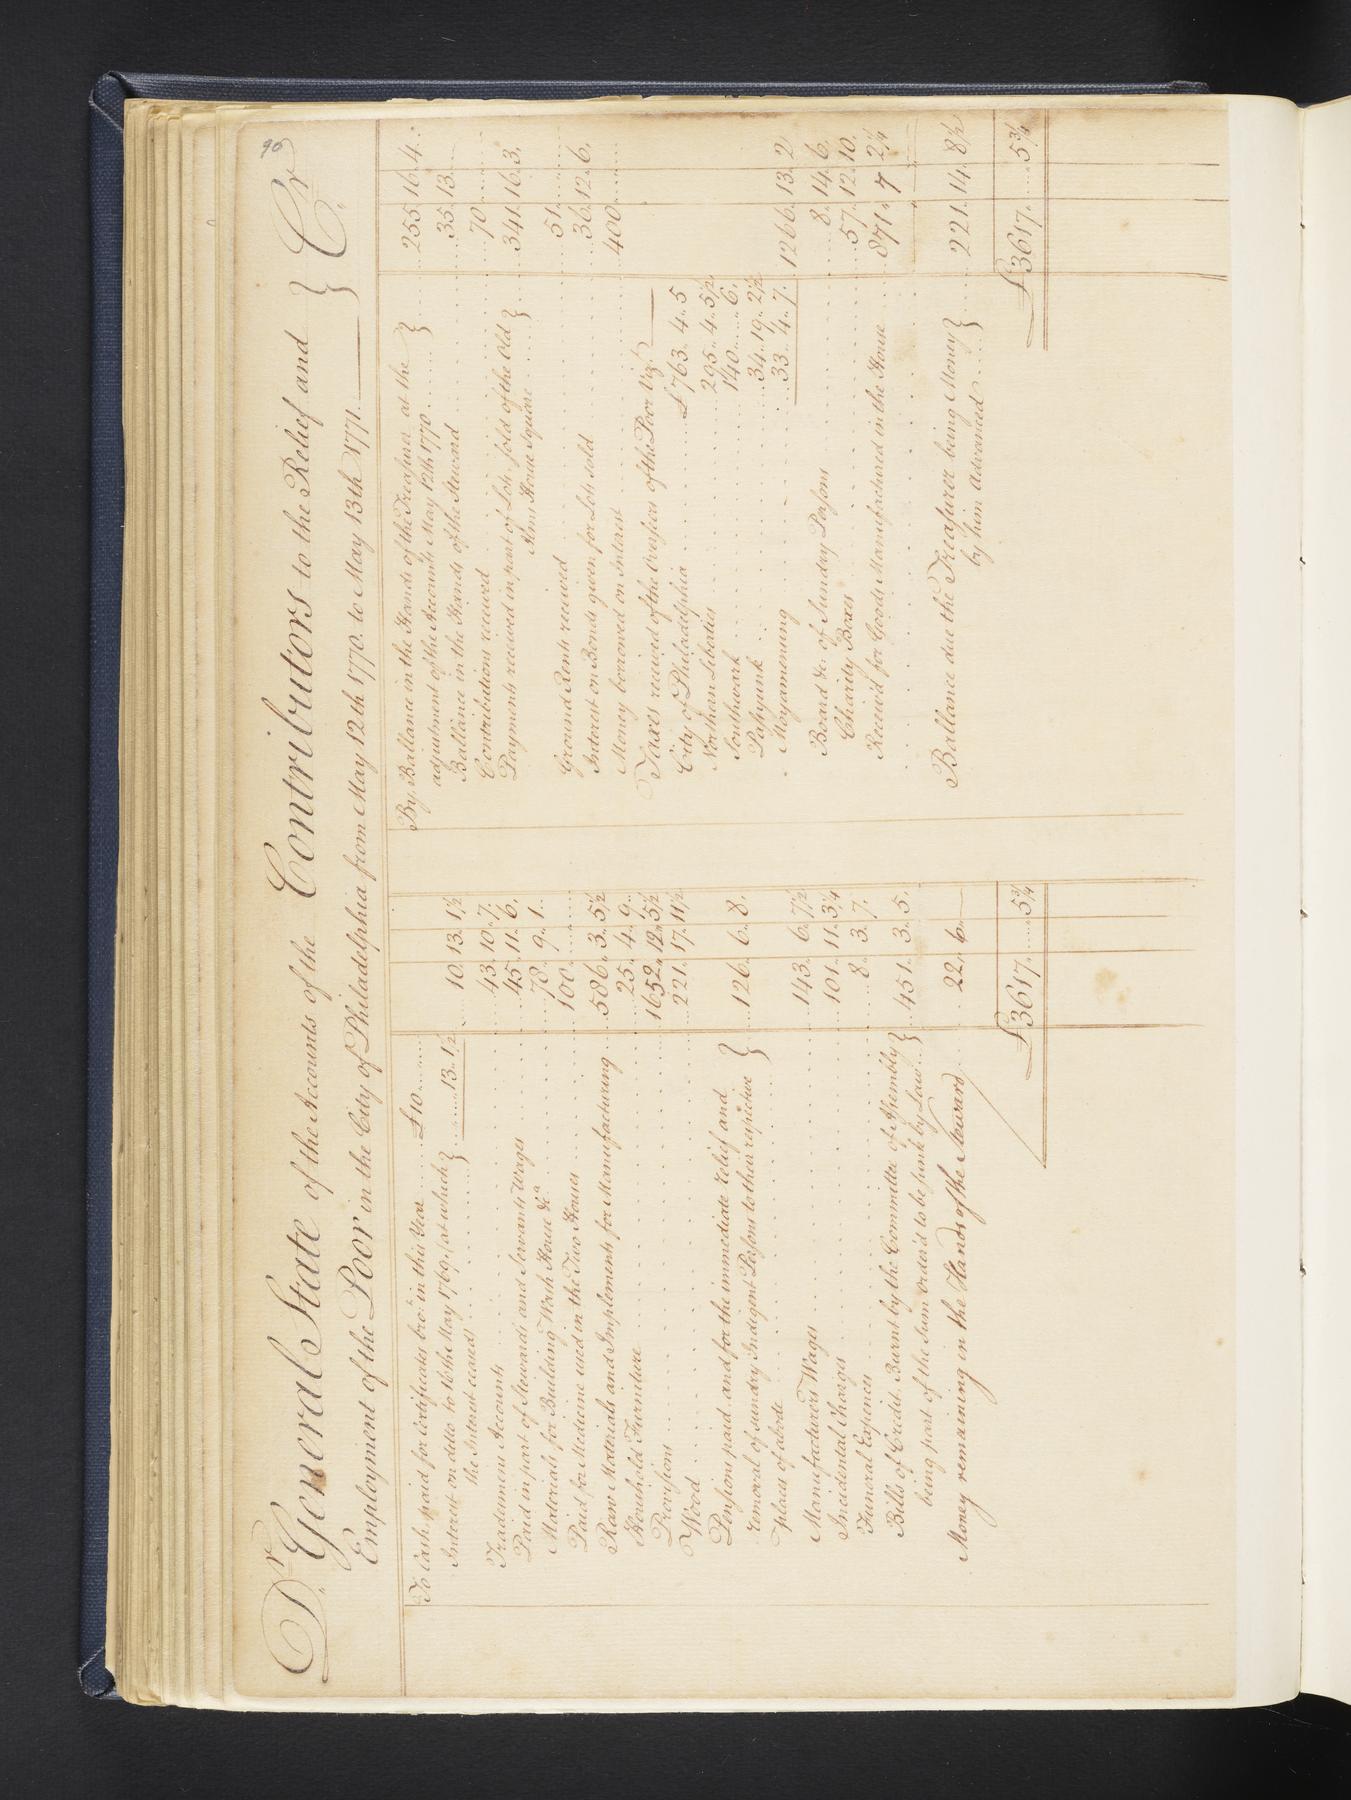 96
Dr. General State of the Accounts of the Contributors to the Relief and } Cr
Employment of the Poor in the City of Philadelphia from May 12th 1770. to May 13th 1771.
To Cash paid for Certificates bro: in this Year £10
Interest on ditto to 10th May 1769, (at which } 13. 1½ 10. 13. 1½
the Interest ceased)
Tradesmens Accounts 43. 10. 7.
Paid in part of Stewards and Servants Wages 45. 11. 6.
Materials for Building, Wash House &ca 78. 9. 1.
Paid for Medicine used in the Two Houses 100
Raw Materials and Implements for Manufacturing 586. 3. 5½
Household Furniture 25. 4. 9.
Provisions 1652. 12. 5½
Wood 221. 17. 11½
Pensions paid and for the immediate relief and }
removal of sundry Indigent Persons to their respective } 126. 6. 8.
places of abode
Manufacturers Wages 143. 6. 7½
Incidental Charges 101. 11. 3¼
Funeral Expences 8. 3. 7.
Bills of Credit Burnt by the Committee of Assembly }
being part of the Sum order'd to be sunk by Law } 451. 3. 5.
Money remaining in the Hands of the Steward 22. 6.
£3617. 5¾
By Ballance in the Hands of the Treasurer at the }
adjustment of the Accounts May 12th 1770 } 255. 16. 4.
Ballance in the Hands of the Steward 35. 13.
Contributions received 70
Payments received in part of Lots sold of the Old } 341. 16. 3.
Alms House Square
Ground Rents received 51
Interest on Bonds given for Lots sold 36. 12. 6.
Money borrowed on Interest 400
Taxes received of the Overseers of the Poor Vizt.
City of Philadelphia £763. 4. 5
Northern Liberties 295. 4. 5½
Southwark 140. 6.
Passyunk 34. 19. 2½
Moyamensing 33. 4. 7. 1266. 13. 2
Board &c. of Sundry Persons 8. 14. 6.
Charity Boxes 57. 12. 10.
Received for Goods Manufactured in the House 871. 7 2¼
Ballance due the Treasurer being Money }
by him advanced } 221. 14. 8½
£3617. 5¾